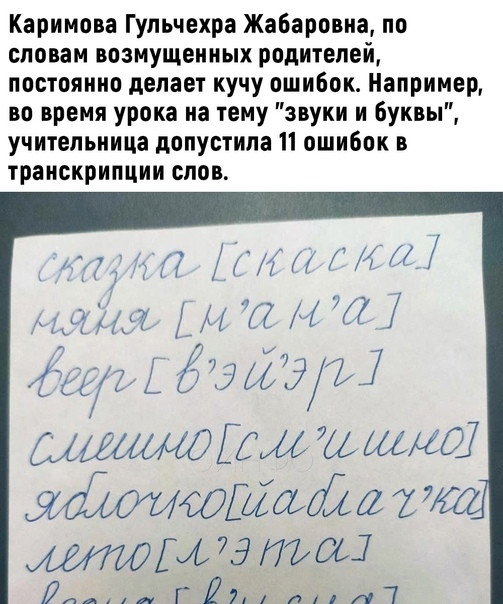 Каримова Гульчехра Жабаровна, по
словам возмущенных родителей,
постоянно делает кучу ошибок. Например,
во время урока на тему "звуки и буквы",
учительница допустила 11 ошибок в
транскрипции слов.
сказка [скаска]
няня [н'ан'а]
веер [в'эй'эр]
смешно [см'ишно]
яблочко [йаблач'ка]
лето [л'эта]